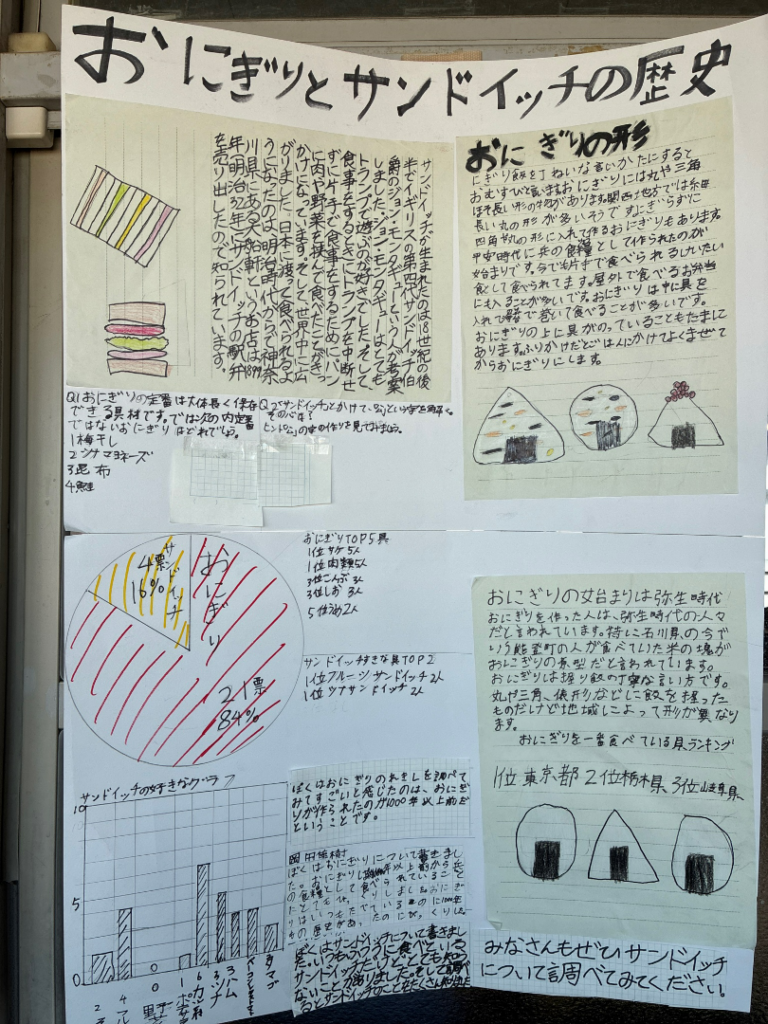 おにぎりとサンドイッチの歴史
サンドイッチが生まれたのは18世紀の後
半でイギリスの第四代サンドイッチ伯
爵のジョン・モンタギューという人が考案
しました。ジョン・モンタギューはとても
トランプで遊ぶのが好きでした。そして、
食事をするときにトランプを中断せ
ずに片手で食事をするためにパン
に肉や野菜を挟んで食べたことがきっ
かけになっています。そして、世界中に広
がりました。日本に渡って食べられるよ
うになったのは、明治時代からで神奈
川県にある大船軒というお店は1899
年(明治32年)にサンドイッチの駅弁
を売り出したので知られています。
おにぎりの形
にぎり飯を丁ねいな言いかたにすると
おむすびと言いますおにぎりには丸や三角
ほそ長い形の物があります。関西地方では
長い丸の形が多いそうです。にぎらずに
四角や丸の形に入れて作るおにぎりもあります
時代に兵の食糧として作られたのが
始まりです。今でも片手で食べられるけいたい
食として食べられてます。屋外で食べるお弁当
にも入ることが多いです。おにぎりは中に具を
入れて で巻いて食べることが多いです。
おにぎりの上に具がのっていることもたまに
あります。ふりかけだとごはんにかけてよくまぜて
からおにぎりにします。
Q1おにぎりの定番は大体長く保存
できる具材です。では次の内定番
ではないおにぎりはどれでしょう。
1梅干し
2ツナマヨネーズ
3昆布
4鮭
サンドイッチとかけて、
その心は?
の作りを見てみましょう。
サンドイッチ
4票
16%
おにぎり
21票
84%
おにぎりTOP5具
1位サケ5人
1位肉類5人
3位こんぶ3人
3位しお3人
5位うめ2人
サンドイッチすきな具TOP2
1位フルーツサンドイッチ2人
1位ツナサンドイッチ2人
おにぎりの始まりは弥生時代
おにぎりを作った人は、弥生時代の人々
だと言われています。特に石川県の今で
いう能登町の人が食べていた米の塊が
おにぎりの原型だと言われています。
おにぎりは握り飯の丁寧な言い方です。
丸や三角、俵形などに飯を握った
ものだけど地域によって形が異なり
ます。
おにぎりを一番食べている県ランキング
1位東京都2位栃木県3位岐阜県
サンドイッチの好きなグラフ
10
5
0
ツナ
3ハム
タマゴ
ぼくはおにぎりのれきしを調べて
みてすごいと感じたのは、おにぎ
りが作られたのが1000年以上前だ
ということです。
ぼくはおにぎりについて書きまし
ぼくはサンドイッチについて書きまし
みなさんもぜひサンドイッチ
について調べてみてください。